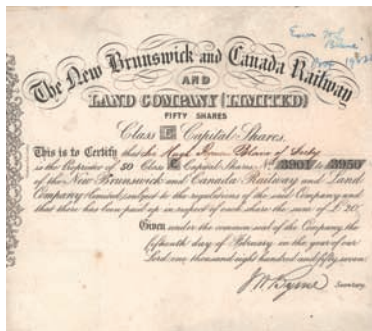 The New Brunswick and Canada Railway
AND
LAND COMPANY (LIMITED)
FIFTY SHARES
Class E Capital Shares.
This is to Certify that Sir Hugh
is the Proprietor of 50 Class Capital Shares No. 3901 to 3950
of the New Brunswick and Canada Railway and Land
Company Limited, subject to the regulations of the said Company and
that there has been paid up in respect of each share the sum of £ 20.
Given under the common seal of the Company, the
fifteenth day of February in the year of our
Lord one thousand eight hundred and fifty seven
Secretary